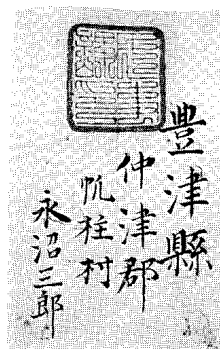 豐津縣
仲津郡
帆柱村
永沼三郎